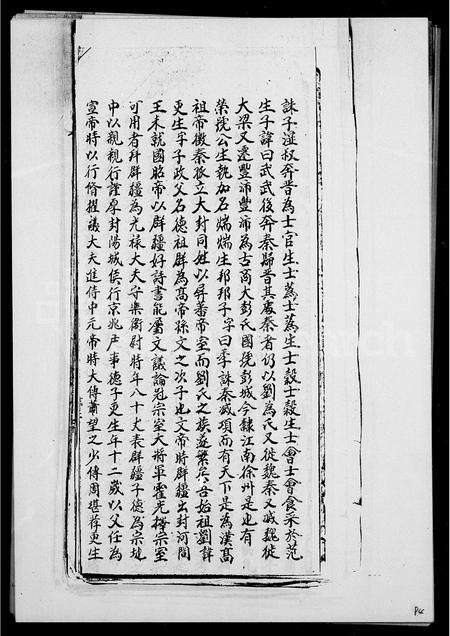 誅子溫叔奔晉為士官生士蒍士蒍生士縠士縠生士會士會食采於范
生子諱曰武武後奔秦歸晉其處秦者仍以劉為氏又從魏秦又滅魏徙
大梁又遷豐沛豐沛為古商大彭氏國號彭城今隸江南徐州是也有
榮號公生執加名煓煓生邦邦子字曰季誅秦滅項而有天下是為漢高
祖帝徵秦孤立大封同姓以屏蕃帝室而劉氏之族遂繁矣吾始祖劉諱
更生字子政父名德祖群為高帝孫文之次子也文帝時群疆出封河間
王未就國昭帝以群疆好詩書能屬文議論冠宗室大將軍霍光擇宗室
可用者拜群疆為光祿大夫守樂衛尉時年八十丈表群疆子德為宗正
中以親親行謹厚封陽城侯行京兆尹事德子更生年十二歲以父任為
宣帝時以行脩擢議大夫進侍中元帝時大傅蕭望之少傅周堪荐更生